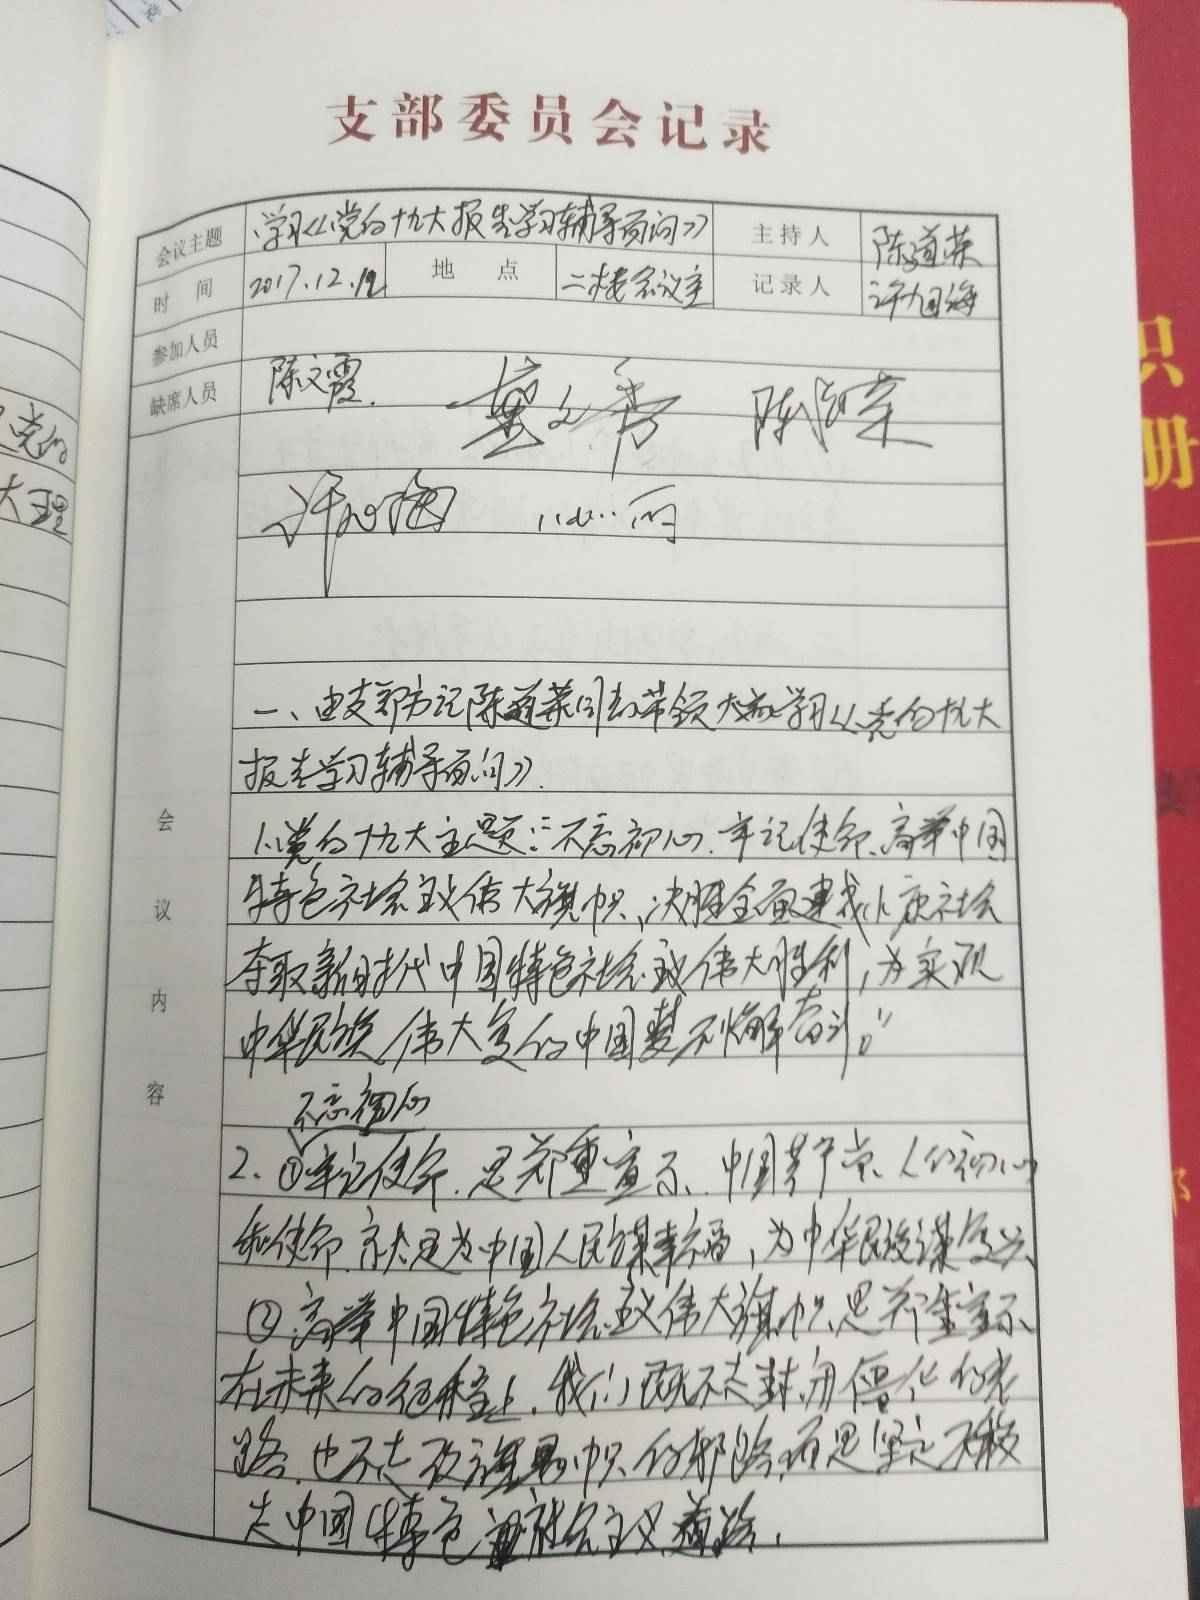 支部委员会记录
会议主题 学习《党的十九大报告学习辅导百问》 主持人 陈道荣
时间 2017.12.12 地点 二楼会议室 记录人 许旭海
参加人员
缺席人员 陈文霞 董文秀 陈道荣
许旭海
一、由支部书记陈道荣同志带领大家学习《党的十九大
报告学习辅导百问》.
1.党的十九大主题:"不忘初心、牢记使命、高举中国
特色社会主义伟大旗帜,决胜全面建成小康社会
夺取新时代中国特色社会主义伟大胜利,为实现
中华民族伟大复的中国梦不懈奋斗。"
不忘初心
2.①牢记使命.是郑重宣示.中国共产党人的初心
和使命.就是为中国人民谋幸福,为中华民族谋复兴
②高举中国特色社会主义伟大旗帜,是郑重宣示
在未来的征程上,我们既不走封闭僵化的老
路,也不走改旗易帜的邪路,而是坚定不移
走中国特色社会主义道路.
会议内容
党的
大理
织
册
部